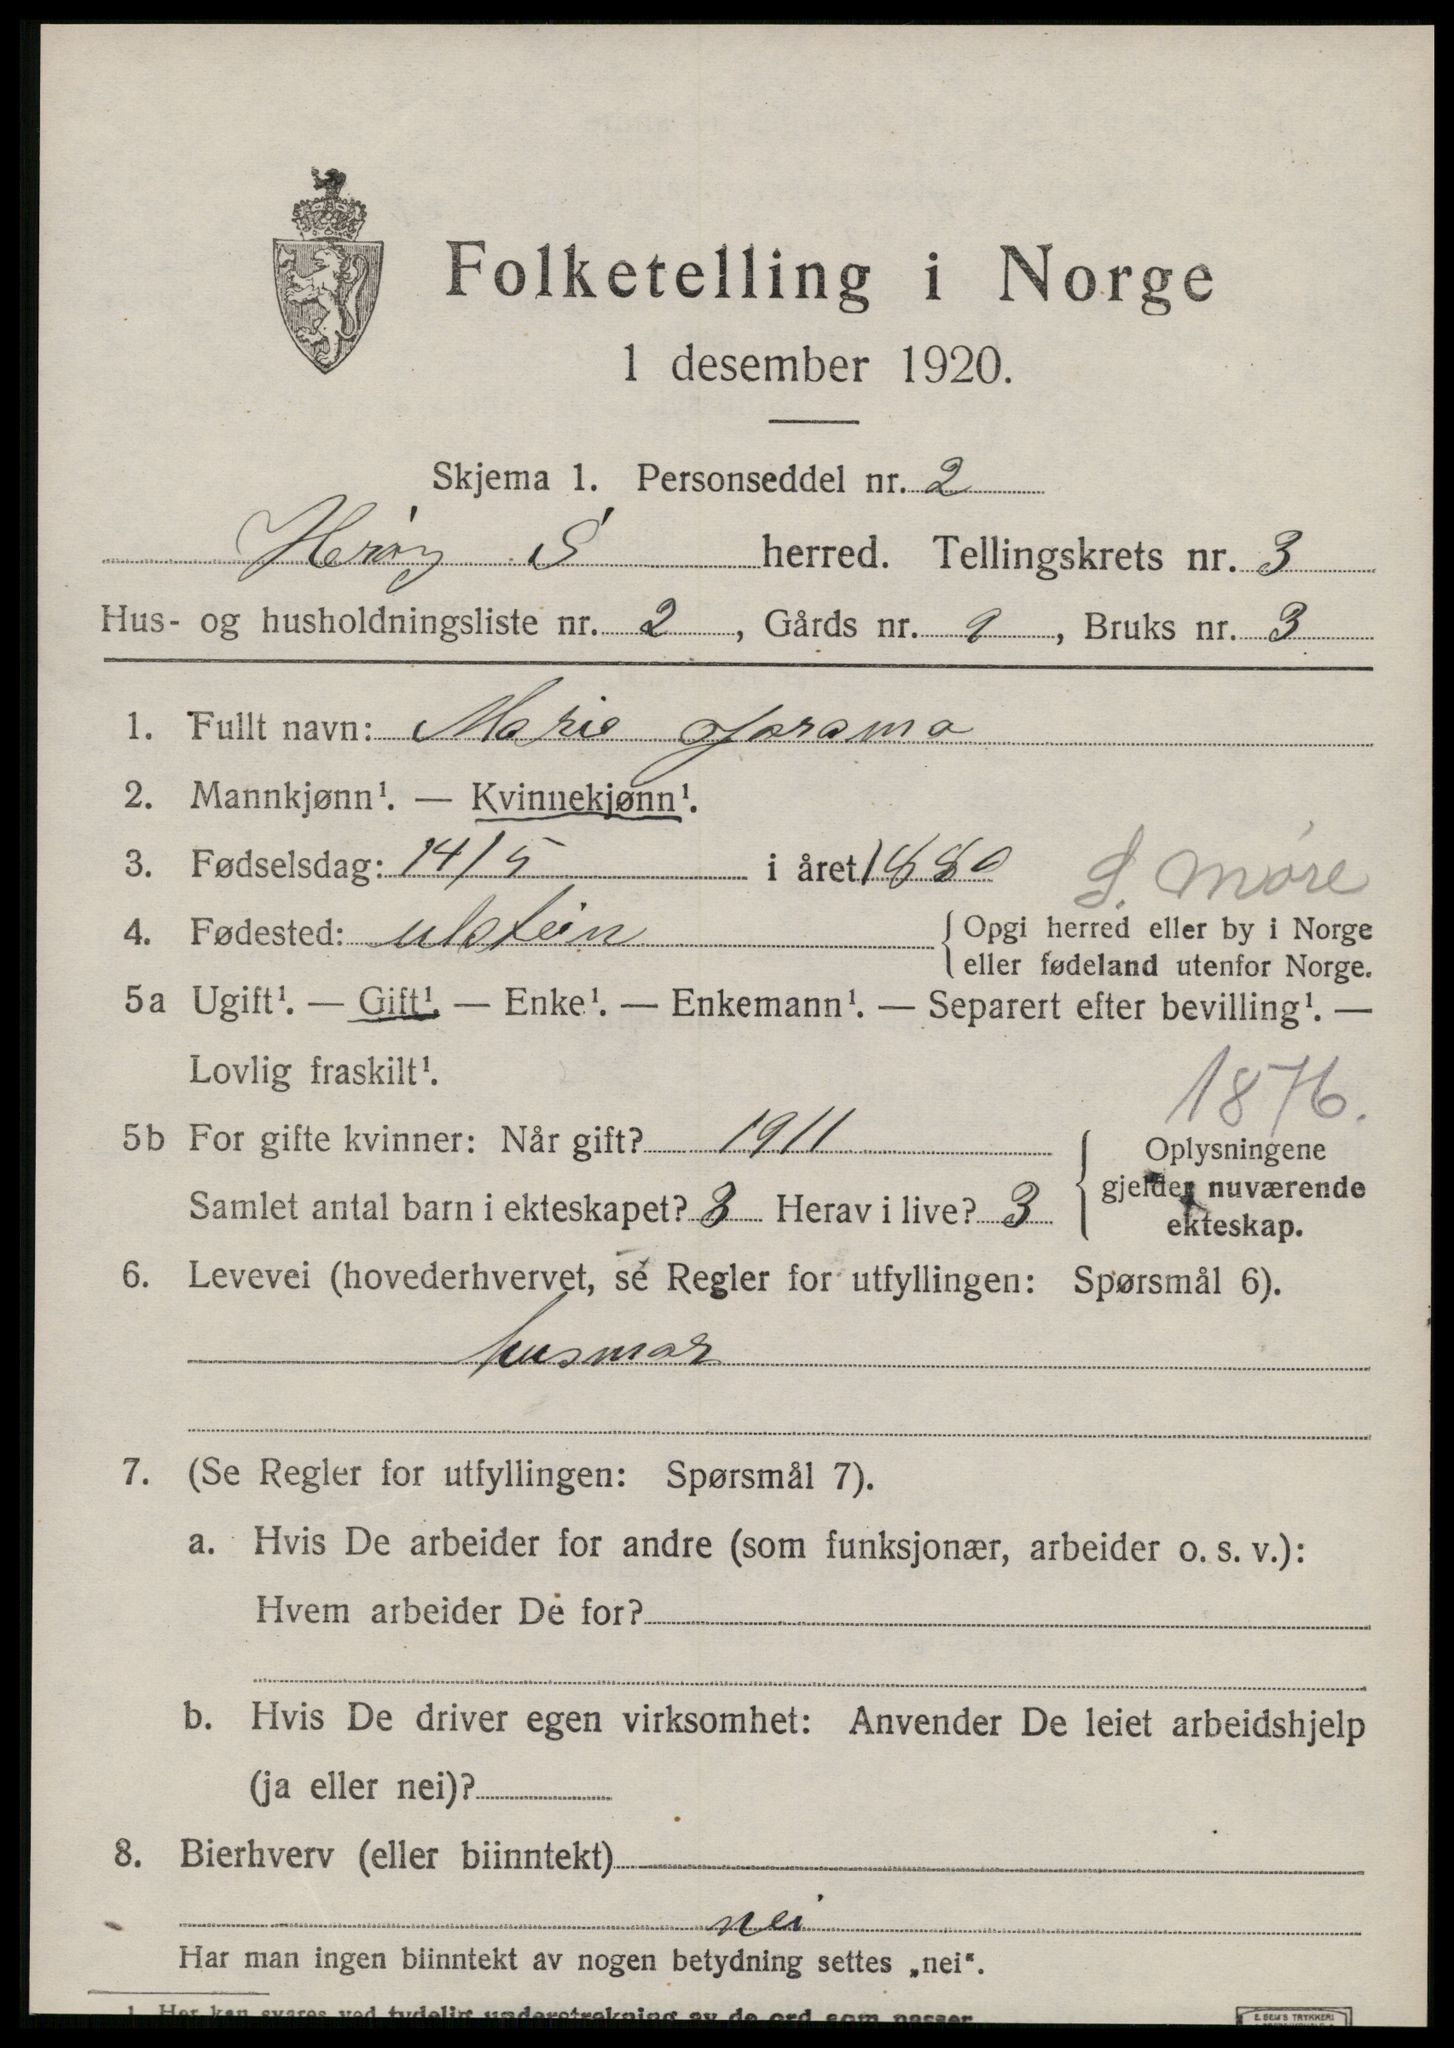 Folketelling i Norge
1 desember 1920.
Skjema 1. Personseddel nr. 2
Herøy S herred. Tellingskrets nr. 3
Hus- og husholdningsliste nr. 2, Gårds nr. 9, Bruks nr. 3
1. Fullt navn: Marie
2. Mannkjønn¹. — Kvinnekjønn¹.
3. Fødselsdag: 14/5 i året 1880 S. Møre
4. Fødested: Ulstein {Opgi herred eller by i Norge
eller fødeland utenfor Norge.
5a Ugift¹. — Gift¹. — Enke¹. — Enkemann¹. — Separert efter bevilling¹. —
Lovlig fraskilt¹.
1876.
5b For gifte kvinner: Når gift? 1911 Oplysningene
Samlet antal barn i ekteskapet? 3 Herav i live? 3 gjelder nuværende
ekteskap.
6. Levevei (hovederhvervet, se Regler for utfyllingen: Spørsmål 6).
husmor
7. (Se Regler for utfyllingen: Spørsmål 7).
a. Hvis De arbeider for andre (som funksjonær, arbeider o. s. v.):
Hvem arbeider De for?
b. Hvis De driver egen virksomhet: Anvender De leiet arbeidshjelp
(ja eller nei)?
8. Bierhverv (eller biinntekt)
nei
Har man ingen biinntekt av nogen betydning settes „nei“.
1. Her kan svares ved tydelig understrekning av de ord som passer.